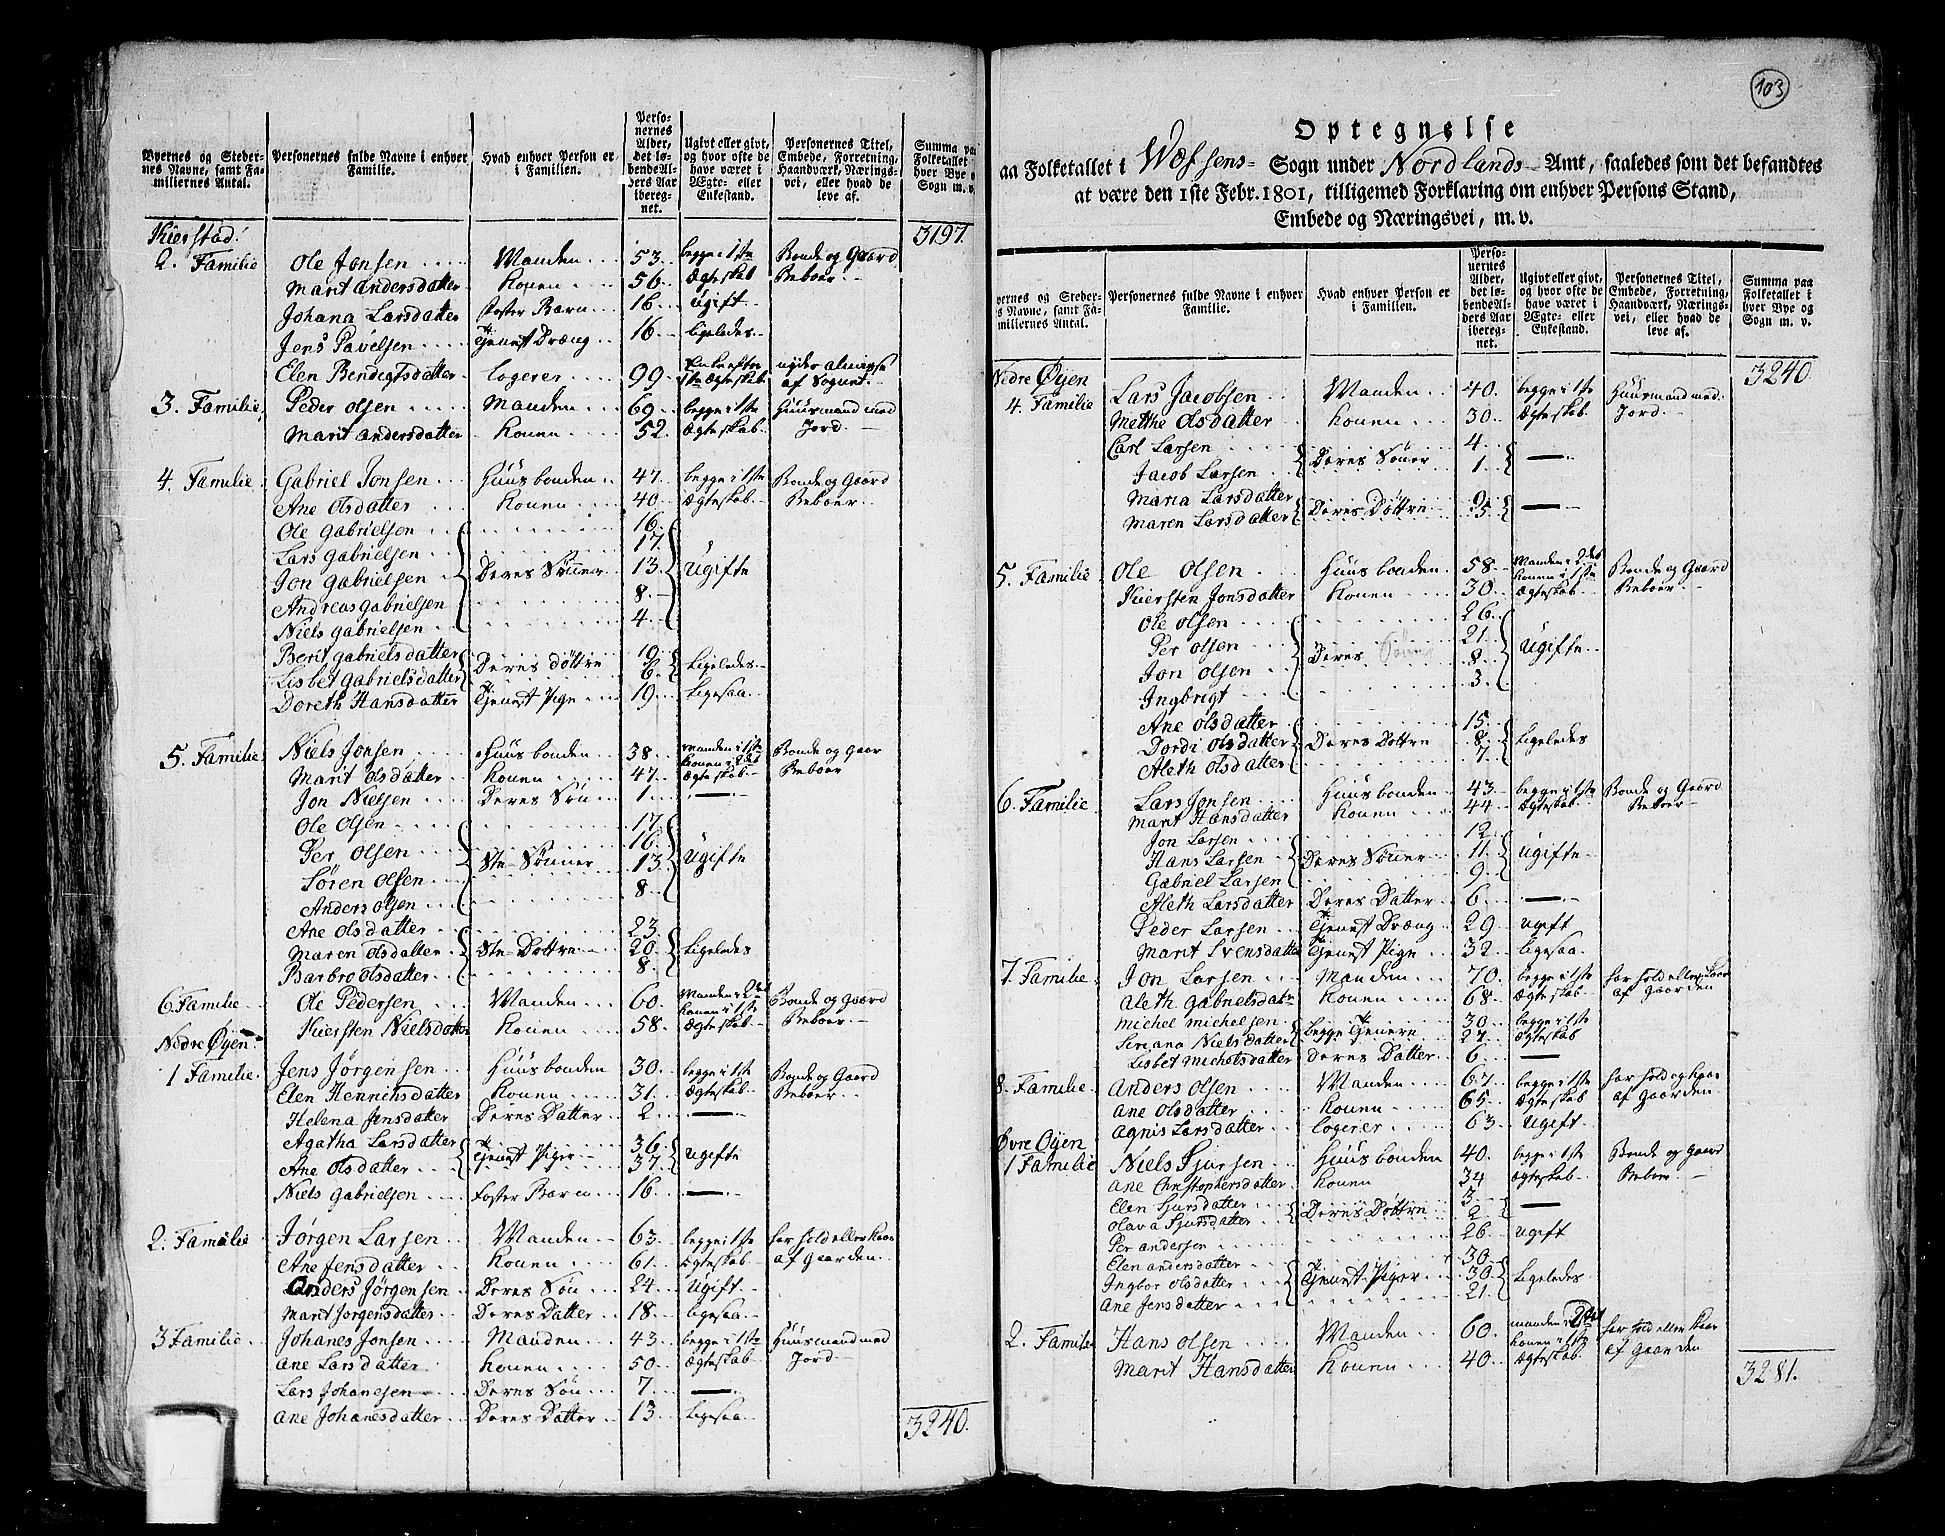 Byernes og Stedernes Navne, samt Familiernes Antal.
Personernes fulde Navne i enhver Familie.
Hvad enhver Person er i Familien.
Personernes Alder, det løbende Alders Aar iberegnet.
Ugivt eller givt, og hvor ofte de have været i Ægte- eller Enkestand.
Personernes Titel, Embede, Forretning, Haandværk, Næringsvei, eller hvad de leve af.
Summa paa Folketallet i hver Bye og Sogn m. v.
Kierstad. 3197.
2. Familie Ole Jonsen Manden 53. begge i 1ste Bonde og Gaard
Marit Andersdatter Konen 56. Ægteskab Beboer
Johana Larsdatter Foster Barn 16. ugift
Jens Pavelsen Tjenest Dræng 16. ligeledes
Elen Bendigtsdatter logerer 99 Enke efter 1ste Ægteskab nyder almisse af Sognet.
3. Familie Peder Olsen Manden 69. begge i 1ste Huusmand med
Marit Andersdatter Konen 52. Ægteskab Jord
4. Familie Gabriel Jonsen Huusbonden 47. begge i 1ste Bonde og Gaard
Ane Olsdatter Konen 40. Ægteskab Beboer
Ole Gabrielsen 16.
Lars Gabrielsen 17.
Jon Gabrielsen Deres Sønner 13. Ugifte
Andreas Gabrielsen 8.
Niels Gabrielsen 4.
Berit Gabrielsdatter 10
Lisbet Gabrielsdatter Deres døttre 6. Ligeledes
Doreth Hansdatter Tjenest Pige 19. Ligesaa
5. Familie Niels Jonsen Huusbonden 38. Manden i 1ste Bonde og Gaar
Marit Olsdatter Konen 47. Konen i 2det Ægteskab Beboer
Jon Nielsen Deres Søn 1.
Ole Olsen 17.
Per Olsen 16.
Søren Olsen Ste-Sønner 13 Ugifte
Anders Olsen 8.
Ane Olsdatter 23.
Maren Olsdatter Ste-Døttre 20. Ligeledes
Barbro Olsdatter 8.
6. Familie Ole Pedersen Manden 60. Manden i 2det Bonde og Gaard
Kiersten Nielsdatter Konen 58. Konen i 1ste Ægteskab Beboer
Nedre Øyen
1 Familie Jens Jørgensen Huusbonden 30. begge i 1ste Bonde og Gaard
Elen Henrichsdatter Konen 31. Ægteskab Beboer
Helena Jensdatter Deres Datter 2
Agatha Larsdatter 36.
Ane Olsdatter Tjenest Piger 37. Ugifte
Niels Gabrielsen Foster Barn 16.
2. Familie Jørgen Larsen Manden 63. begge i 1ste har hold eller kaar
Ane Jensdatter Konen 61. Ægteskab af Gaarden
Anders Jørgensen Deres Søn 24. Ugift
Marit Jørgensdatter Deres Datter 18. ligesaa
3 Familie Johanes Jonsen Manden 43. begge i 1ste Huusmand med
Ane Larsdatter Konen 50. Ægteskab Jord
Lars Johanesen Deres Søn 7
Ane Johanesdatter Deres Datter 13. Ligesaa
3240.
103
Optegnelse
aa Folketallet i Wefsens Sogn under Nordlands Amt, saaledes som det befandtes
at være den 1ste Febr. 1801, tilligemed Forklaring om enhver Persons Stand,
Embede og Næringsvei, m. v.
ernes og Steders Navne, samt Familiernes Antal.
Personernes fulde Navne i enhver Familie.
Hvad enhver Person er i Familien.
Personernes Alder, det løbende Alders Aar iberegnet.
Ugivt eller givt, og hvor ofte de have været i Ægte- eller Enkestand.
Personernes Titel, Embede, Forretning, Haandværk, Næringsvei, eller hvad de leve af.
Summa paa Folketallet i hver Bye og Sogn m. v.
Nedre Øyen 3240
4. Familie Lars Jacobsen Manden 40. begge i 1ste Huusmand med
Mætthe Olsdatter Konen 30. Ægteskab Jord
Carl Larsen 4
Jacob Larsen Deres Sønner 1.
Maria Larsdatter 9
Maren Larsdatter Deres Døttre 5.
5. Familie Ole Olsen Huusbonden 58. Manden i 2det Bonde og Gaard
Kiersten Jonsdatter Konen 30. Konen i 1ste Ægteskab Beboer
Ole Olsen 26.
Per Olsen 21.
Jon Olsen Deres Sønner 8. Ugifte
Ingbrigt 3.
Ane Olsdatter 15.
Dordi Olsdatter Deres Døttre 8. Ligeledes
Aleth Olsdatter 7
6. Familie Lars Jonsen Huusbonden 43. begge i 1ste Bonde og Gaard
Marit Hansdatter Konen 44. Ægteskab Beboer
Jon Larsen 12.
Hans Larsen Deres Sønner 11. Ugifte
Gabriel Larsen 9.
Aleth Larsdatter Deres Datter 6.
Peder Larsen Tjenest Dræng 29 ugift
Marit Svensdatter Tjenest Pige 32. ligesaa
7. Familie Jon Larsen Manden 70. begge i 1ste har hold eller Kaar
Aleth Gabrielsdatr Konen 68. Ægteskab af Gaarden
Michel Michelsen 30. begge i 1ste
Seriana Nielsdatter begge Tjenere 27. Ægteskab
Lisbet Michelsdatter Deres Datter 6.
8. Familie Anders Olsen Manden 67 begge i 1ste har hold og kaar
Ane Olsdatter Konen 65. Ægteskab af Gaarden
Agnis Larsdatter logerer 63. Ugift
Øvre Øyen
1 Familie Niels Sjursen Huusbonden 40. begge i 1ste Bonde og Gaard
Ane Christophersdatter Konen 34 Ægteskab Beboer
Elen Sjursdatter 3
Olava Sjursdatter Deres Døttre 2.
Per Andersen 26. ugift
Elen Andersdatter 30.
Ingbor Olsdatter Tjenest-Piger 30 Ligeledes
Ane Jensdatter 21
2. Familie Hans Olsen Manden 60. manden i 2det har hold eller kaar
Marit Hansdatter Konen 40. Konen i 1ste Ægteskab af Gaarden
3281.